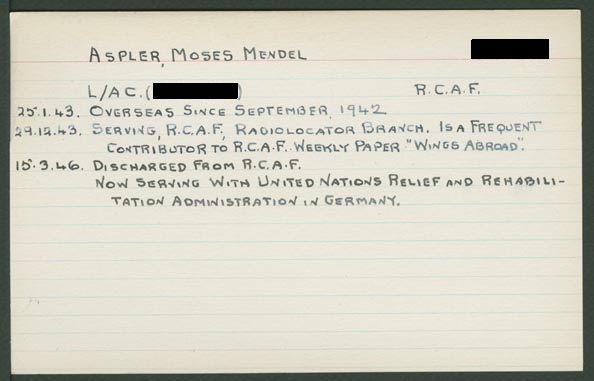 ASPLER, MOSES MENDEL
L/AC. ( ) R.C.A.F.
25.1.43. OVERSEAS SINCE SEPTEMBER, 1942
29.12.43. SERVING, R.C.A.F., RADIOLOCATOR BRANCH. IS A FREQUENT
CONTRIBUTOR TO R.C.A.F. WEEKLY PAPER "WINGS ABROAD".
15.3.46. DISCHARGED FROM R.C.A.F.
NOW SERVING WITH UNITED NATIONS RELIEF AND REHABILI-
TATION ADMINISTRATION IN GERMANY.